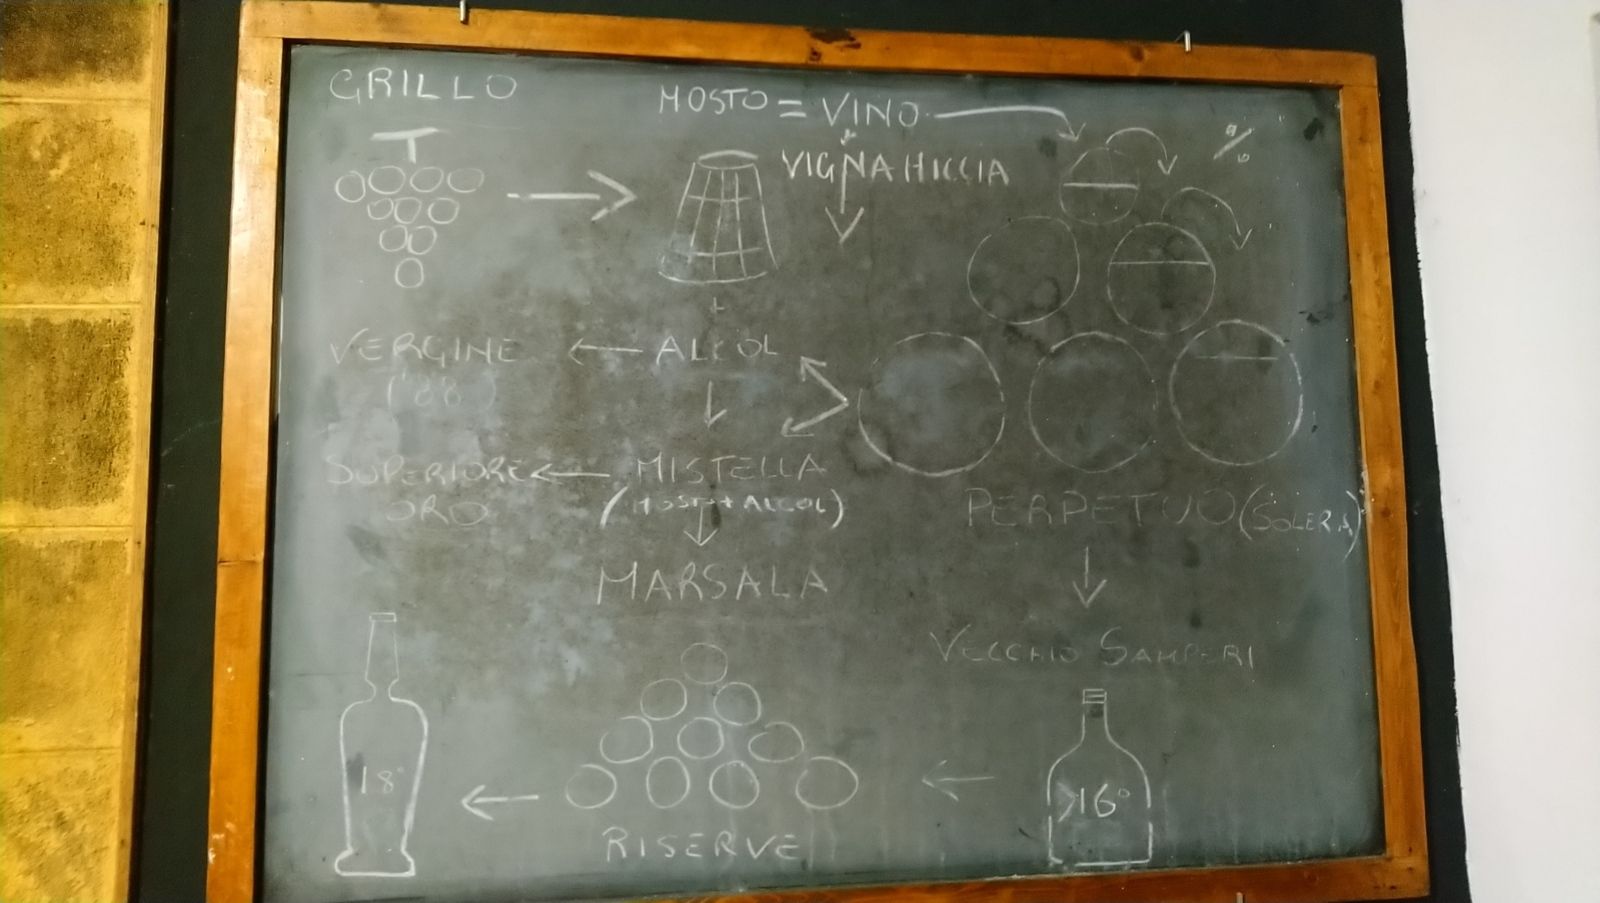 GRILLO
MOSTO = VINO
VIGNA MICCIA
%
+
VERGINE ← ALCOL
('88)
SUPERIORE ← MISTELLA
ORO
(MOSTO + ALCOL)
PERPETUO (SOLERA)
MARSALA
VECCHIO SAMPERI
18°
>16°
RISERVE